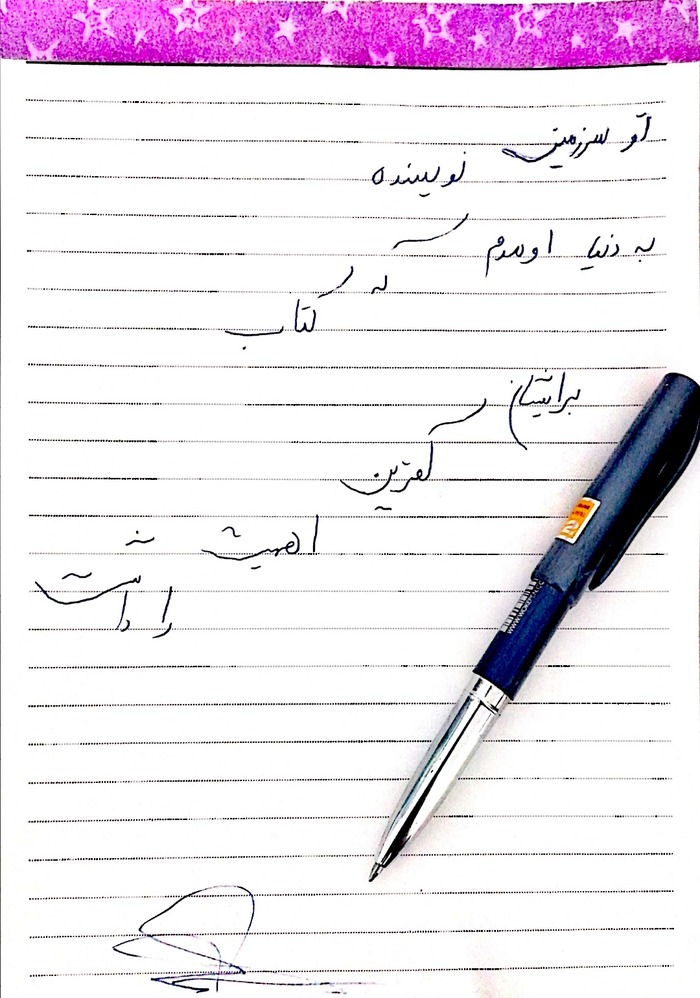 تو سرزمین
نویسنده
به دنیا اومدم
که
کتاب
براشان
کمترین
اهمیت
را داشت